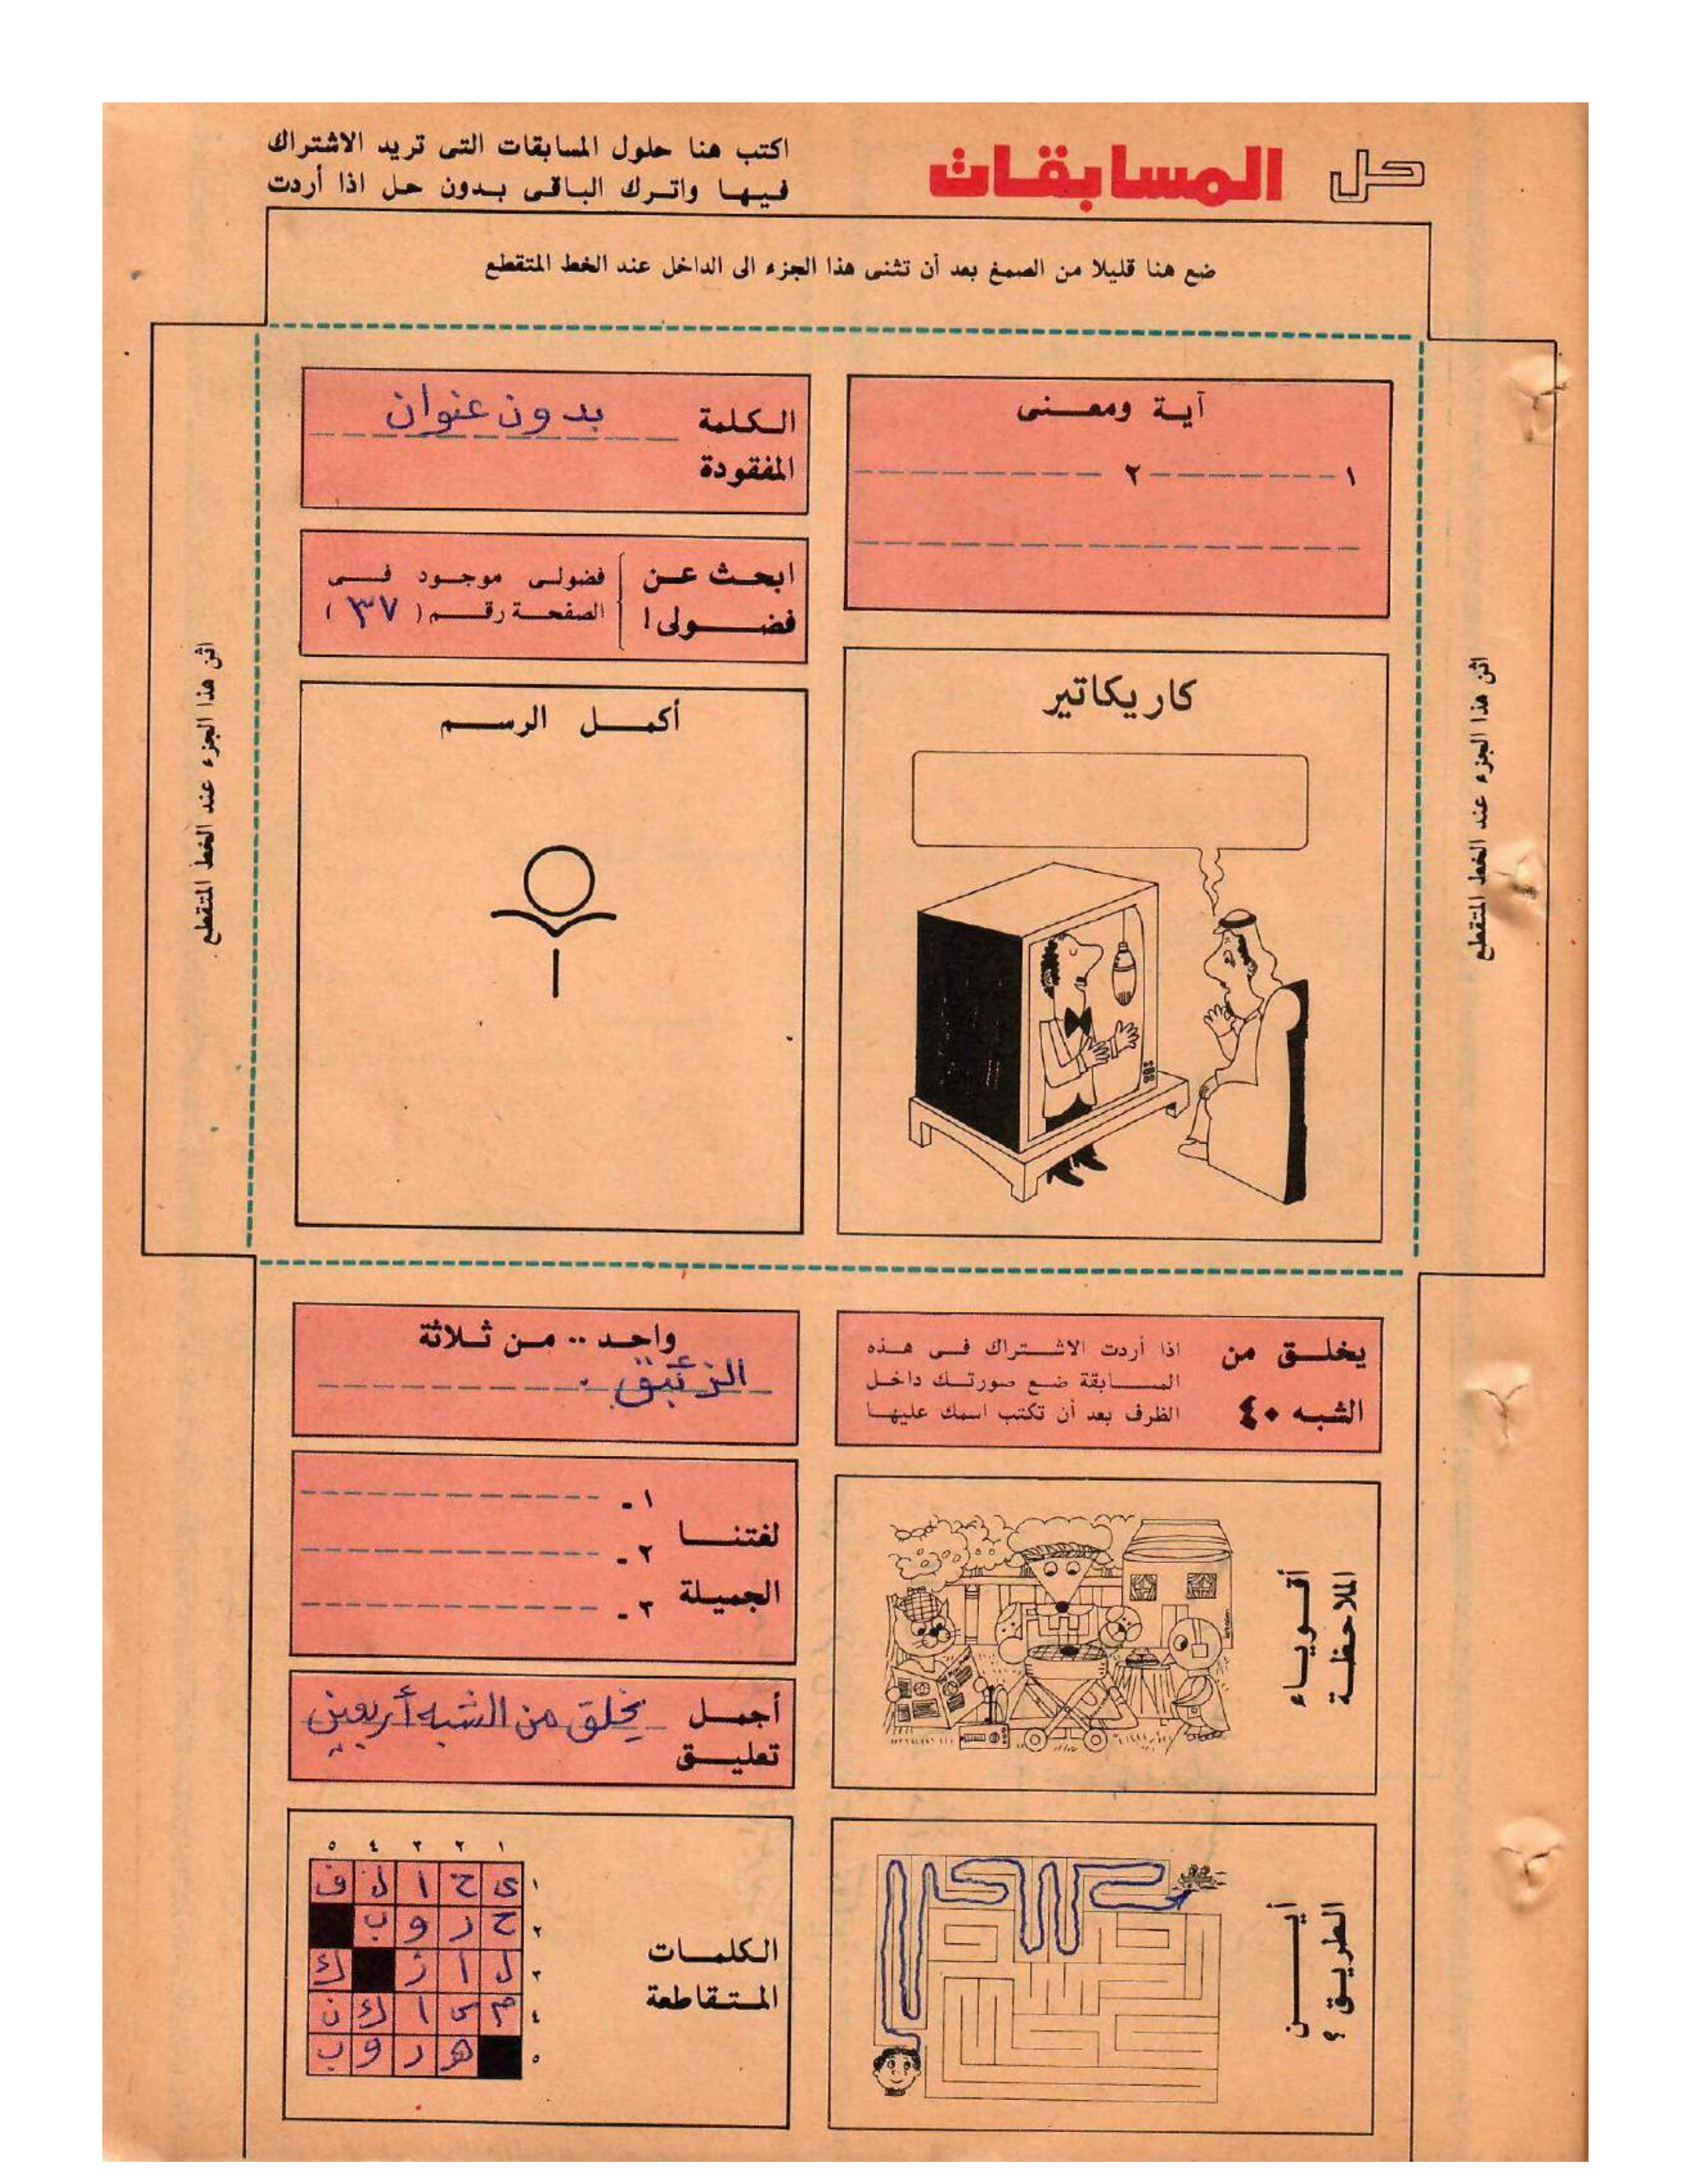 حل المسابقات
اكتب هنا حلول المسابقات التى تريد الاشتراك
فيها واترك الباقى بدون حل اذا أردت
ضع هنا قليلا من الصمغ بعد أن تثنى هذا الجزء الى الداخل عند الخط المتقطع
اثن هذا الجزء عند الخط المتقطع
آية ومعنى
١ ٢
الكلمة
المفقودة
بدون عنوان
ابحث عن
فضولى!
فضولى موجود فى
الصفحة رقم (٣٧)
كاريكاتير
أكمل الرسم
اثن هذا الجزء عند الخط المتقطع
يخلق من
الشبه ٤٠
اذا أردت الاشتراك فى هذه
المسابقة ضع صورتك داخل
الظرف بعد أن تكتب اسمك عليها
واحد .. من ثلاثة
الزئبق .
لغتنا
الجميلة
١ -
٢ -
٣ -
أقوياء
الملاحظة
أجمل
تعليق
يخلق من الشبه أربعين
أين
الطريق ؟
الكلمات
المتقاطعة
١ ٢ ٣ ٤ ٥
١ ى ح ا ل ف
٢ ح ر و ب
٣ ل ا ز ك
٤ م س ا ك ن
٥ ه ر و ب